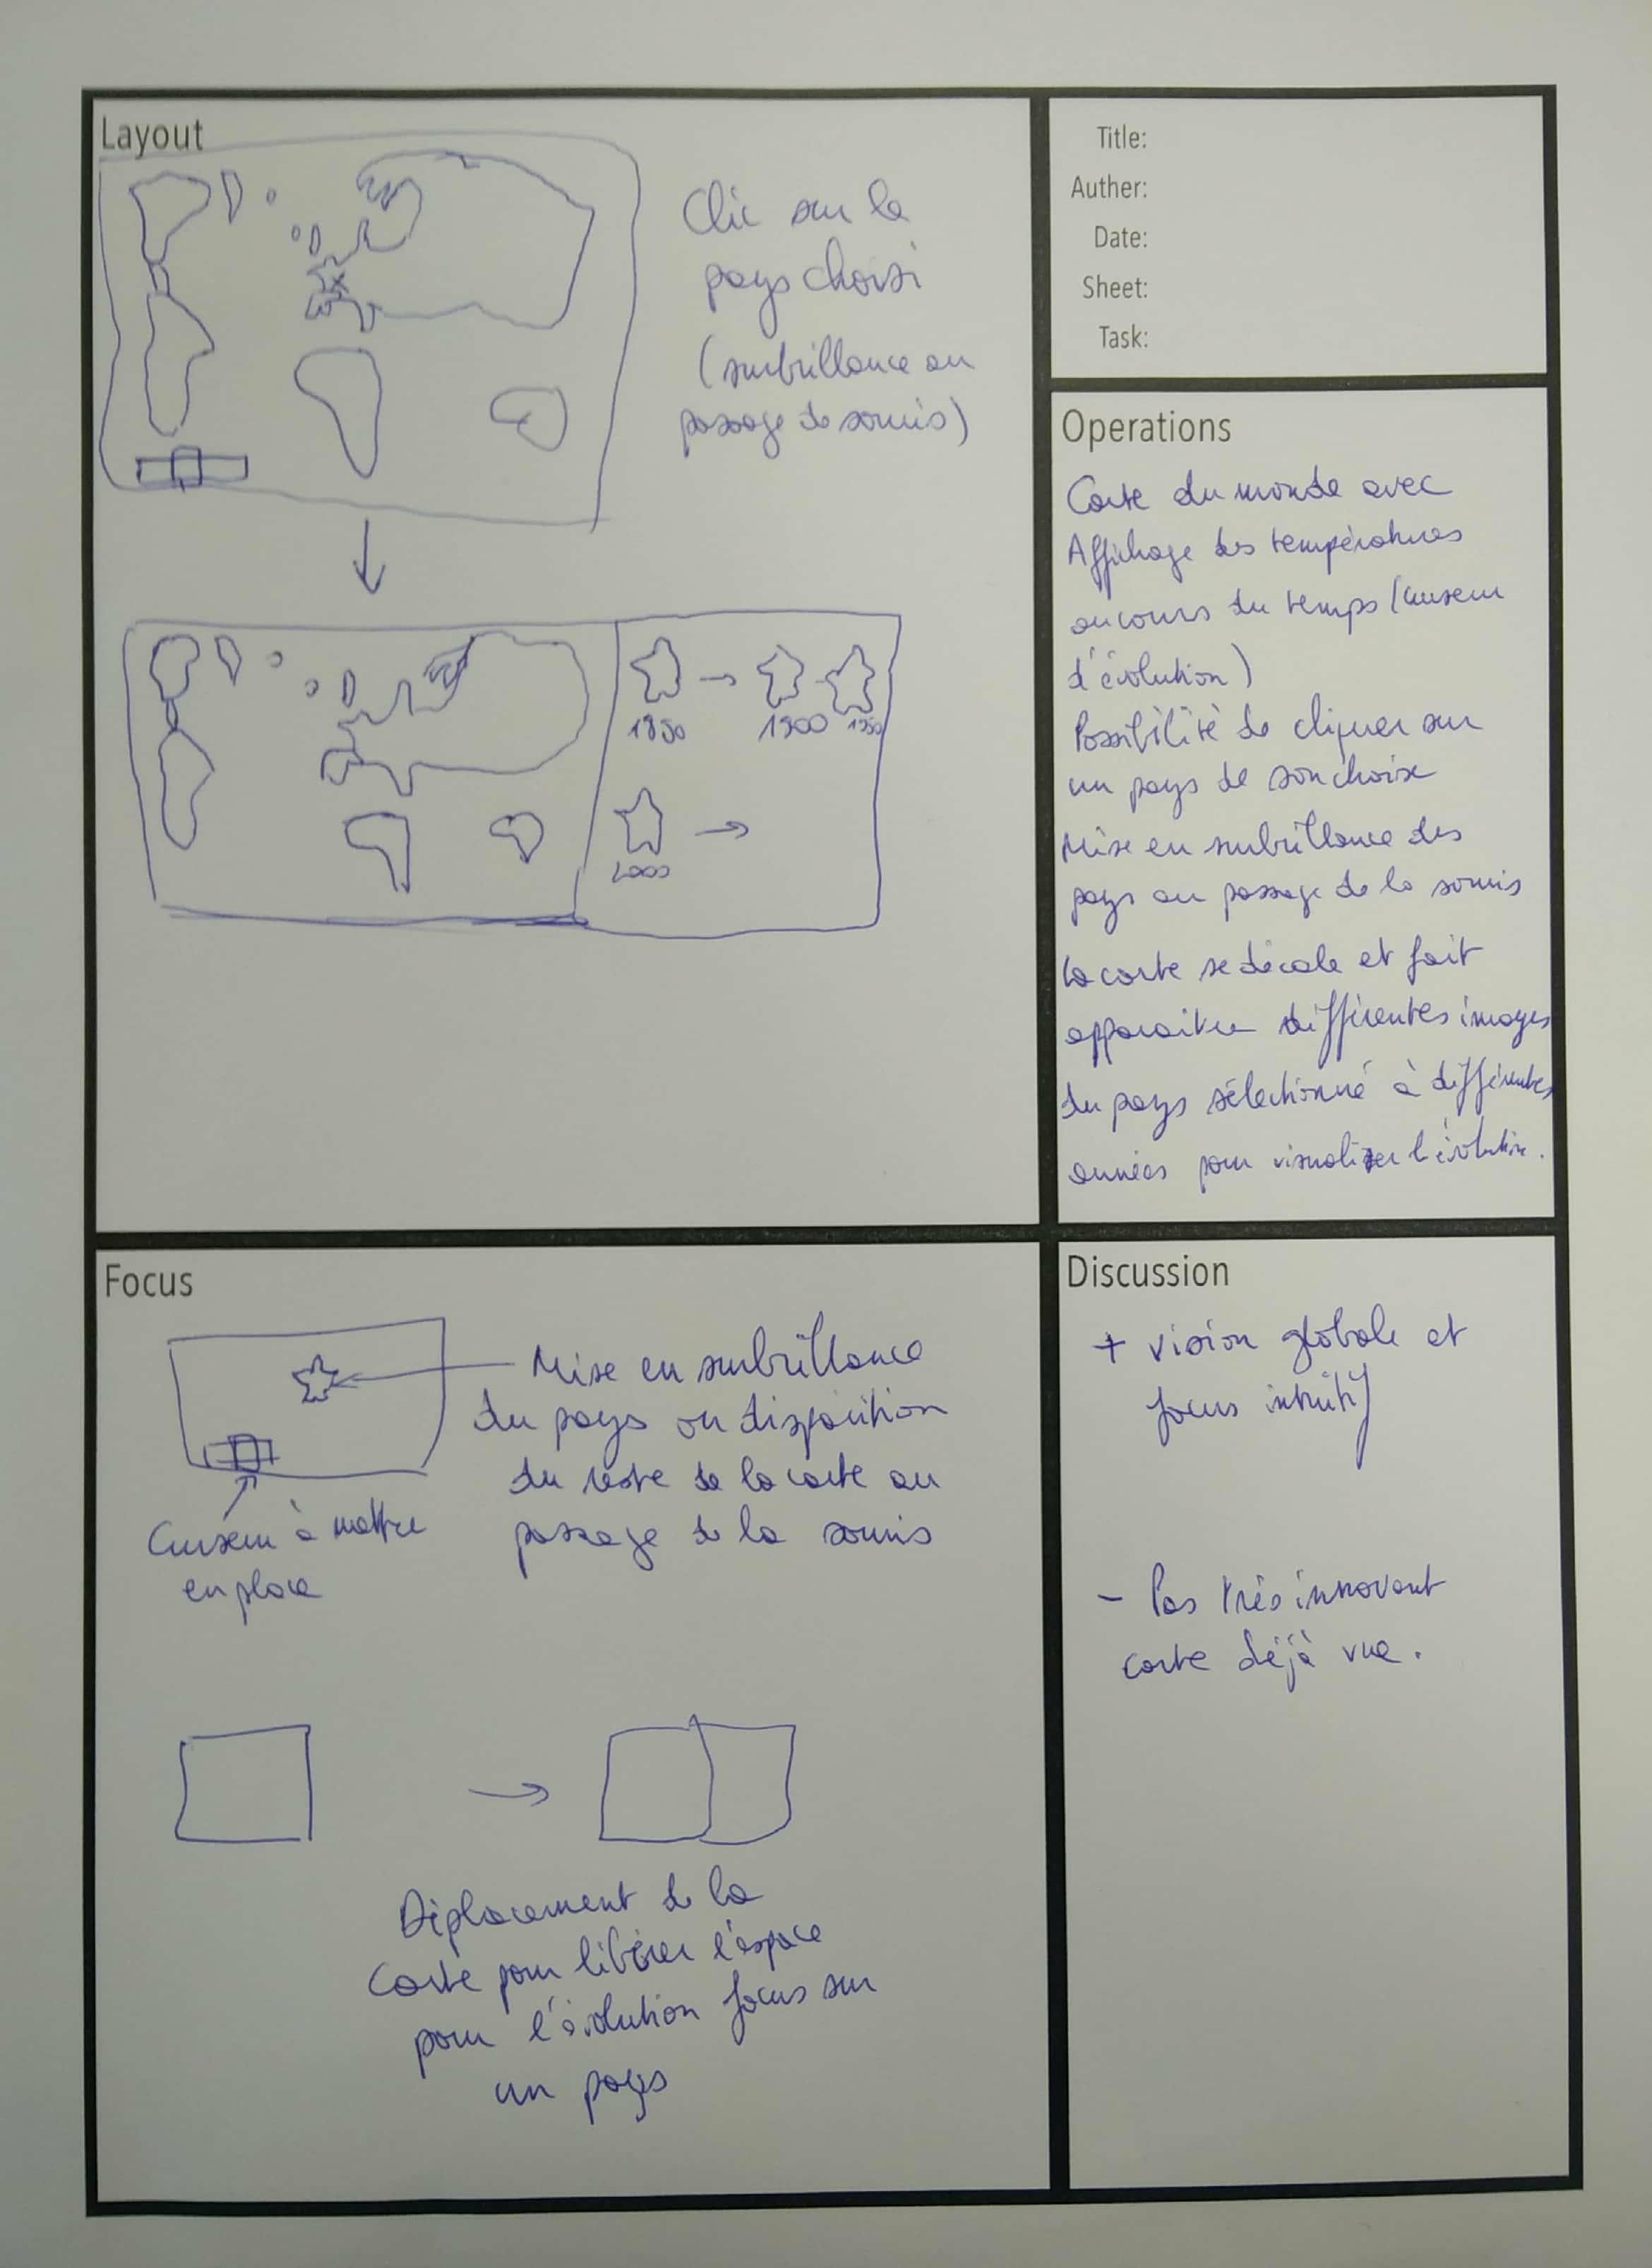 Layout
Clic sur le
pays choisi
(surbrillance au
passage de souris)
1850
1900
1950
2000
Title:
Auther:
Date:
Sheet:
Task:
Operations
Carte du monde avec
Affichage des températures
au cours du temps (curseur
d'évolution)
Possibilité de cliquer sur
un pays de son choix
Mise en surbrillance des
pays au passage de la souris
La carte se décale et fait
apparaitre différentes images
du pays sélectionné à différentes
années pour visualiser l'évolution.
Focus
Mise en surbrillance
du pays ou disparition
du reste de la carte au
passage de la souris
Curseur à mettre
en place
Déplacement de la
carte pour libérer l'espace
pour l'évolution focus sur
un pays
Discussion
+ vision globale et
focus intuitif
- Pas très innovant
carte déjà vue.